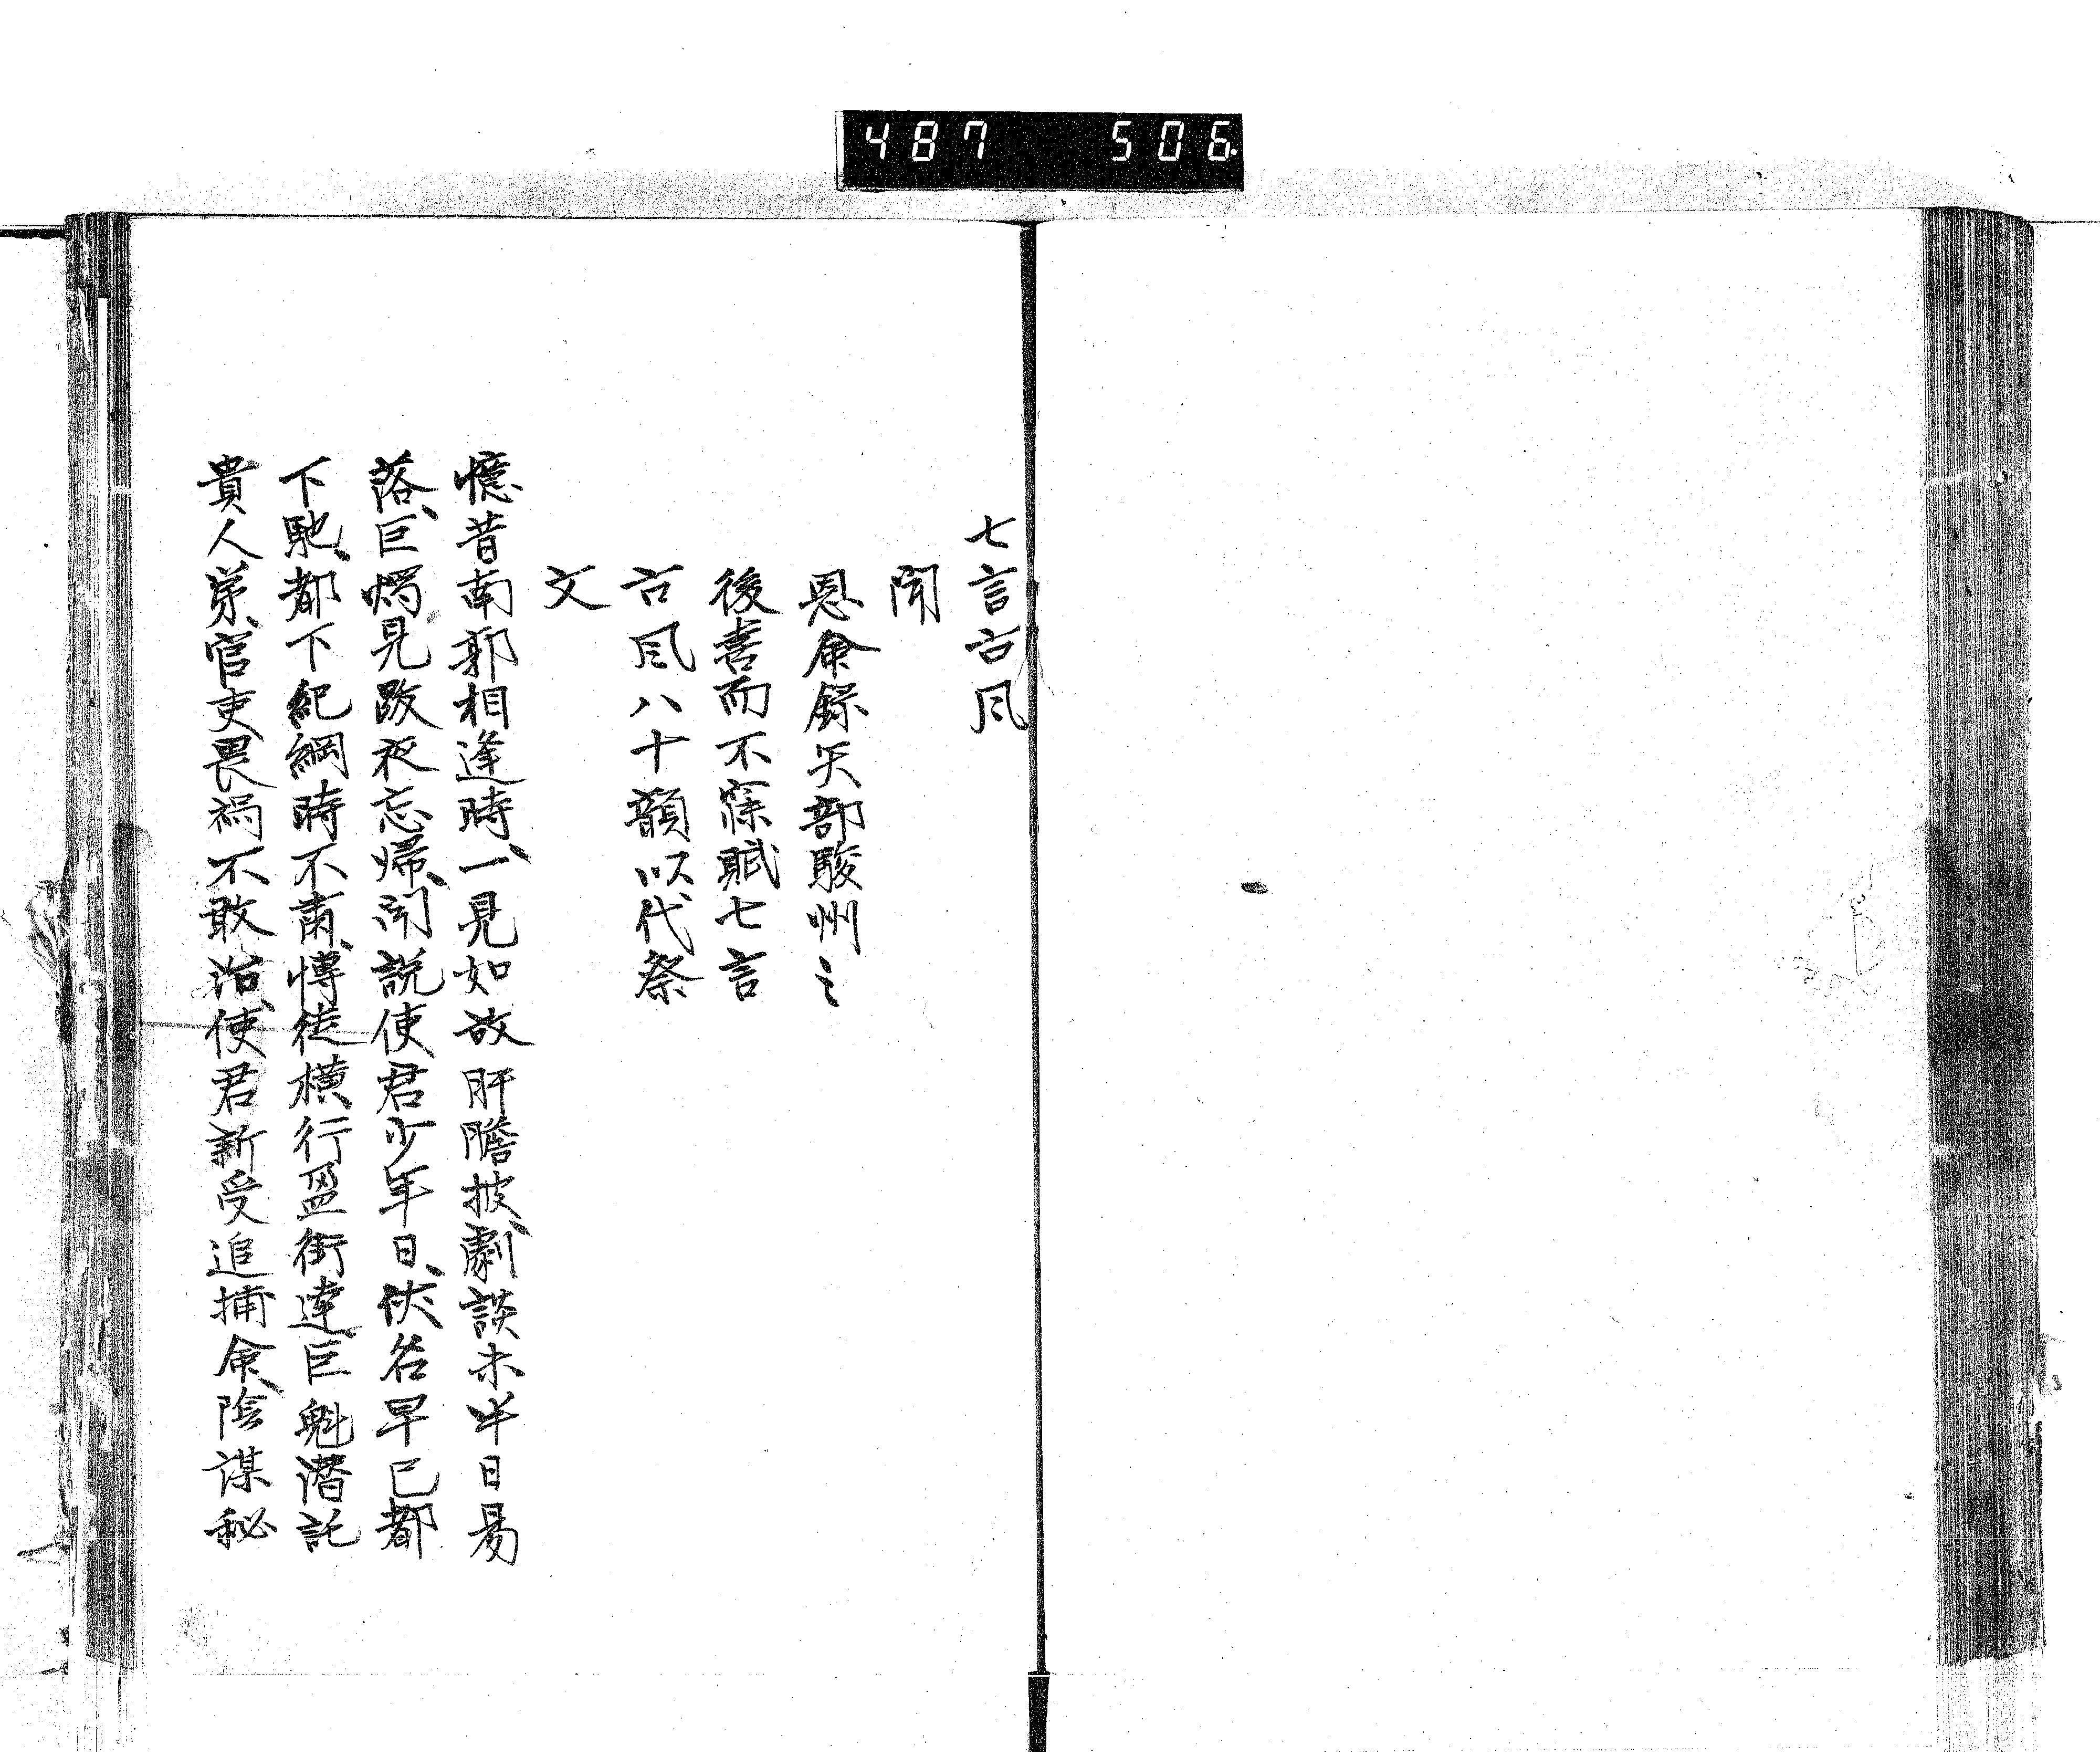 487 506
七言古風
聞
恩命録矢部駿州之
後喜而不寐賦七言
古風八十韻以代祭
文
憶昔南郭相逢時、一見如故肝膽披、劇談未半日易
落、巨燭見跋夜忘帰、聞説使君少年日、侠名早已都
下馳、都下紀綱時不肅、博徒横行盈街逵、巨魁潜託
貴人第、官吏畏禍不敢治、使君新受追捕命、陰謀秘